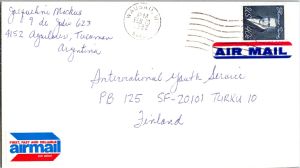 Jacqueline Mockus
9 de Julio 623
4152 Aguilares, Tucuman
Argentina
WAUSAU WI
PM
AIR MAIL
International Youth Service
PB 125 SF-20101 TURKU 10
Finland
FIRST, FAST AND RELIABLE
airmail